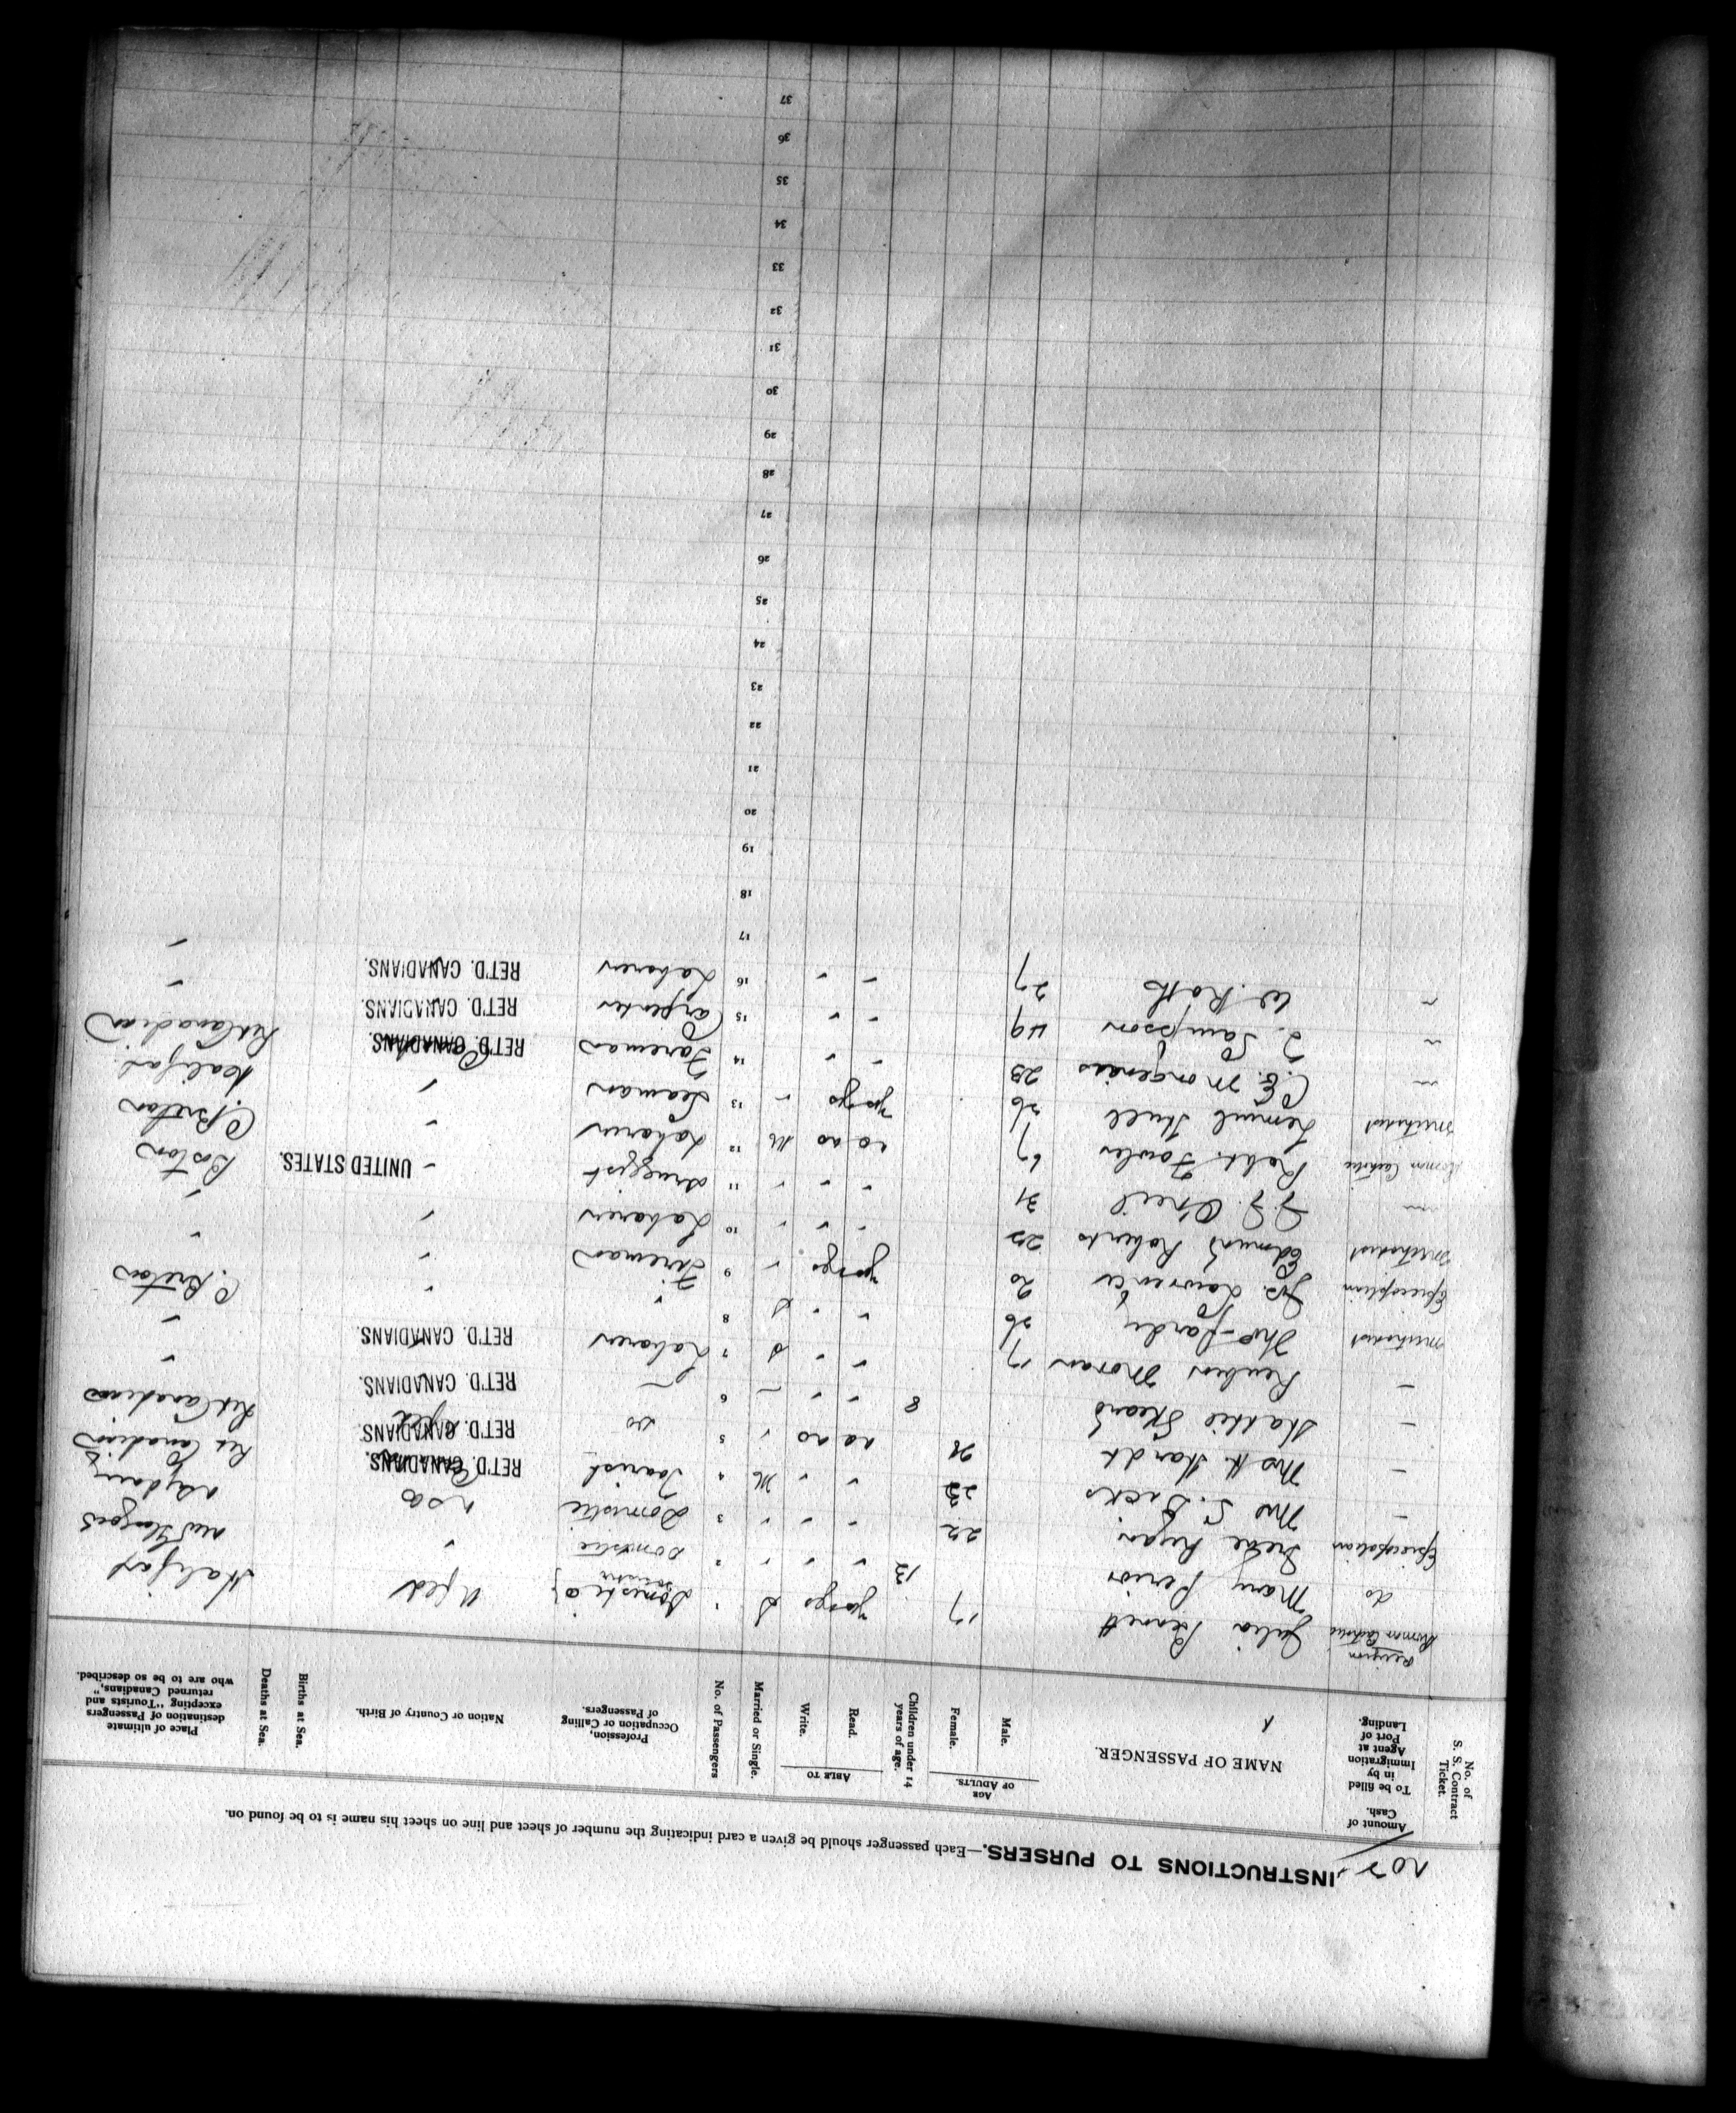 INSTRUCTIONS TO PURSERS.—Each passenger should be given a card indicating the number of sheet and line on sheet his name is to be found on.
No. of S. S. Contract Ticket.
Amount of Cash.
To be filled in by Immigration Agent at Port of Landing.
NAME OF PASSENGER.
AGE OF ADULTS.
Male.
Female.
Children under 14 years of age.
ABLE TO
Read.
Write.
Married or Single.
No. of Passengers
Profession, Occupation or Calling of Passengers.
Nation or Country of Birth.
Births at Sea.
Deaths at Sea.
Place of ultimate destination of Passengers excepting "Tourists and returned Canadians," who are to be so described.
Religion
Roman Catholic Julia Bennett 17 yes yes S 1 Domestic Nfld Halifax
do Mary Perior 13 " " " 2 Domestic "
Episcopalian Irene Ryan 22 " " " 3 Domestic
— Mrs S. Dicks 23 " " M 4 Tourist RET'D. CANADIANS.
— Mrs H. Hardt 28 no no " 5 do RET'D. CANADIANS. Ret Canadian
— Hattie Heard 8 " " — 6 — RET'D. CANADIANS. Ret Canadian
— Reuben Moran 17 " " S 7 Laborer RET'D. CANADIANS. "
Methodist Thos Pardy 26 " " S 8 " " "
Episcopalian Jas. Lawrence 20 yes yes " 9 Fireman " C. Breton
Methodist Edmund Roberts 22 " " " 10 Laborer " "
J. J. O'Neil 31 " " " 11 druggist " UNITED STATES. "
Roman Catholic Robt. Fowler 67 no no M 12 Laborer " Boston
Methodist Lemuel Hull 26 yes yes " 13 Seaman " C. Breton
" C. E. Morgenias 23 " " 14 Foreman RET'D. CANADIANS. Halifax
" J. Sampson 49 " " 15 Carpenter RET'D. CANADIANS. Ret Canadian
" W. Roth 27 " " 16 Laborer RET'D. CANADIANS. "
17 "
18
19
20
21
22
23
24
25
26
27
28
29
30
31
32
33
34
35
36
37